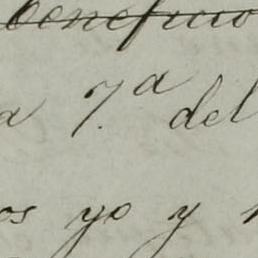 beneficio
a 7.ª del
os yo y